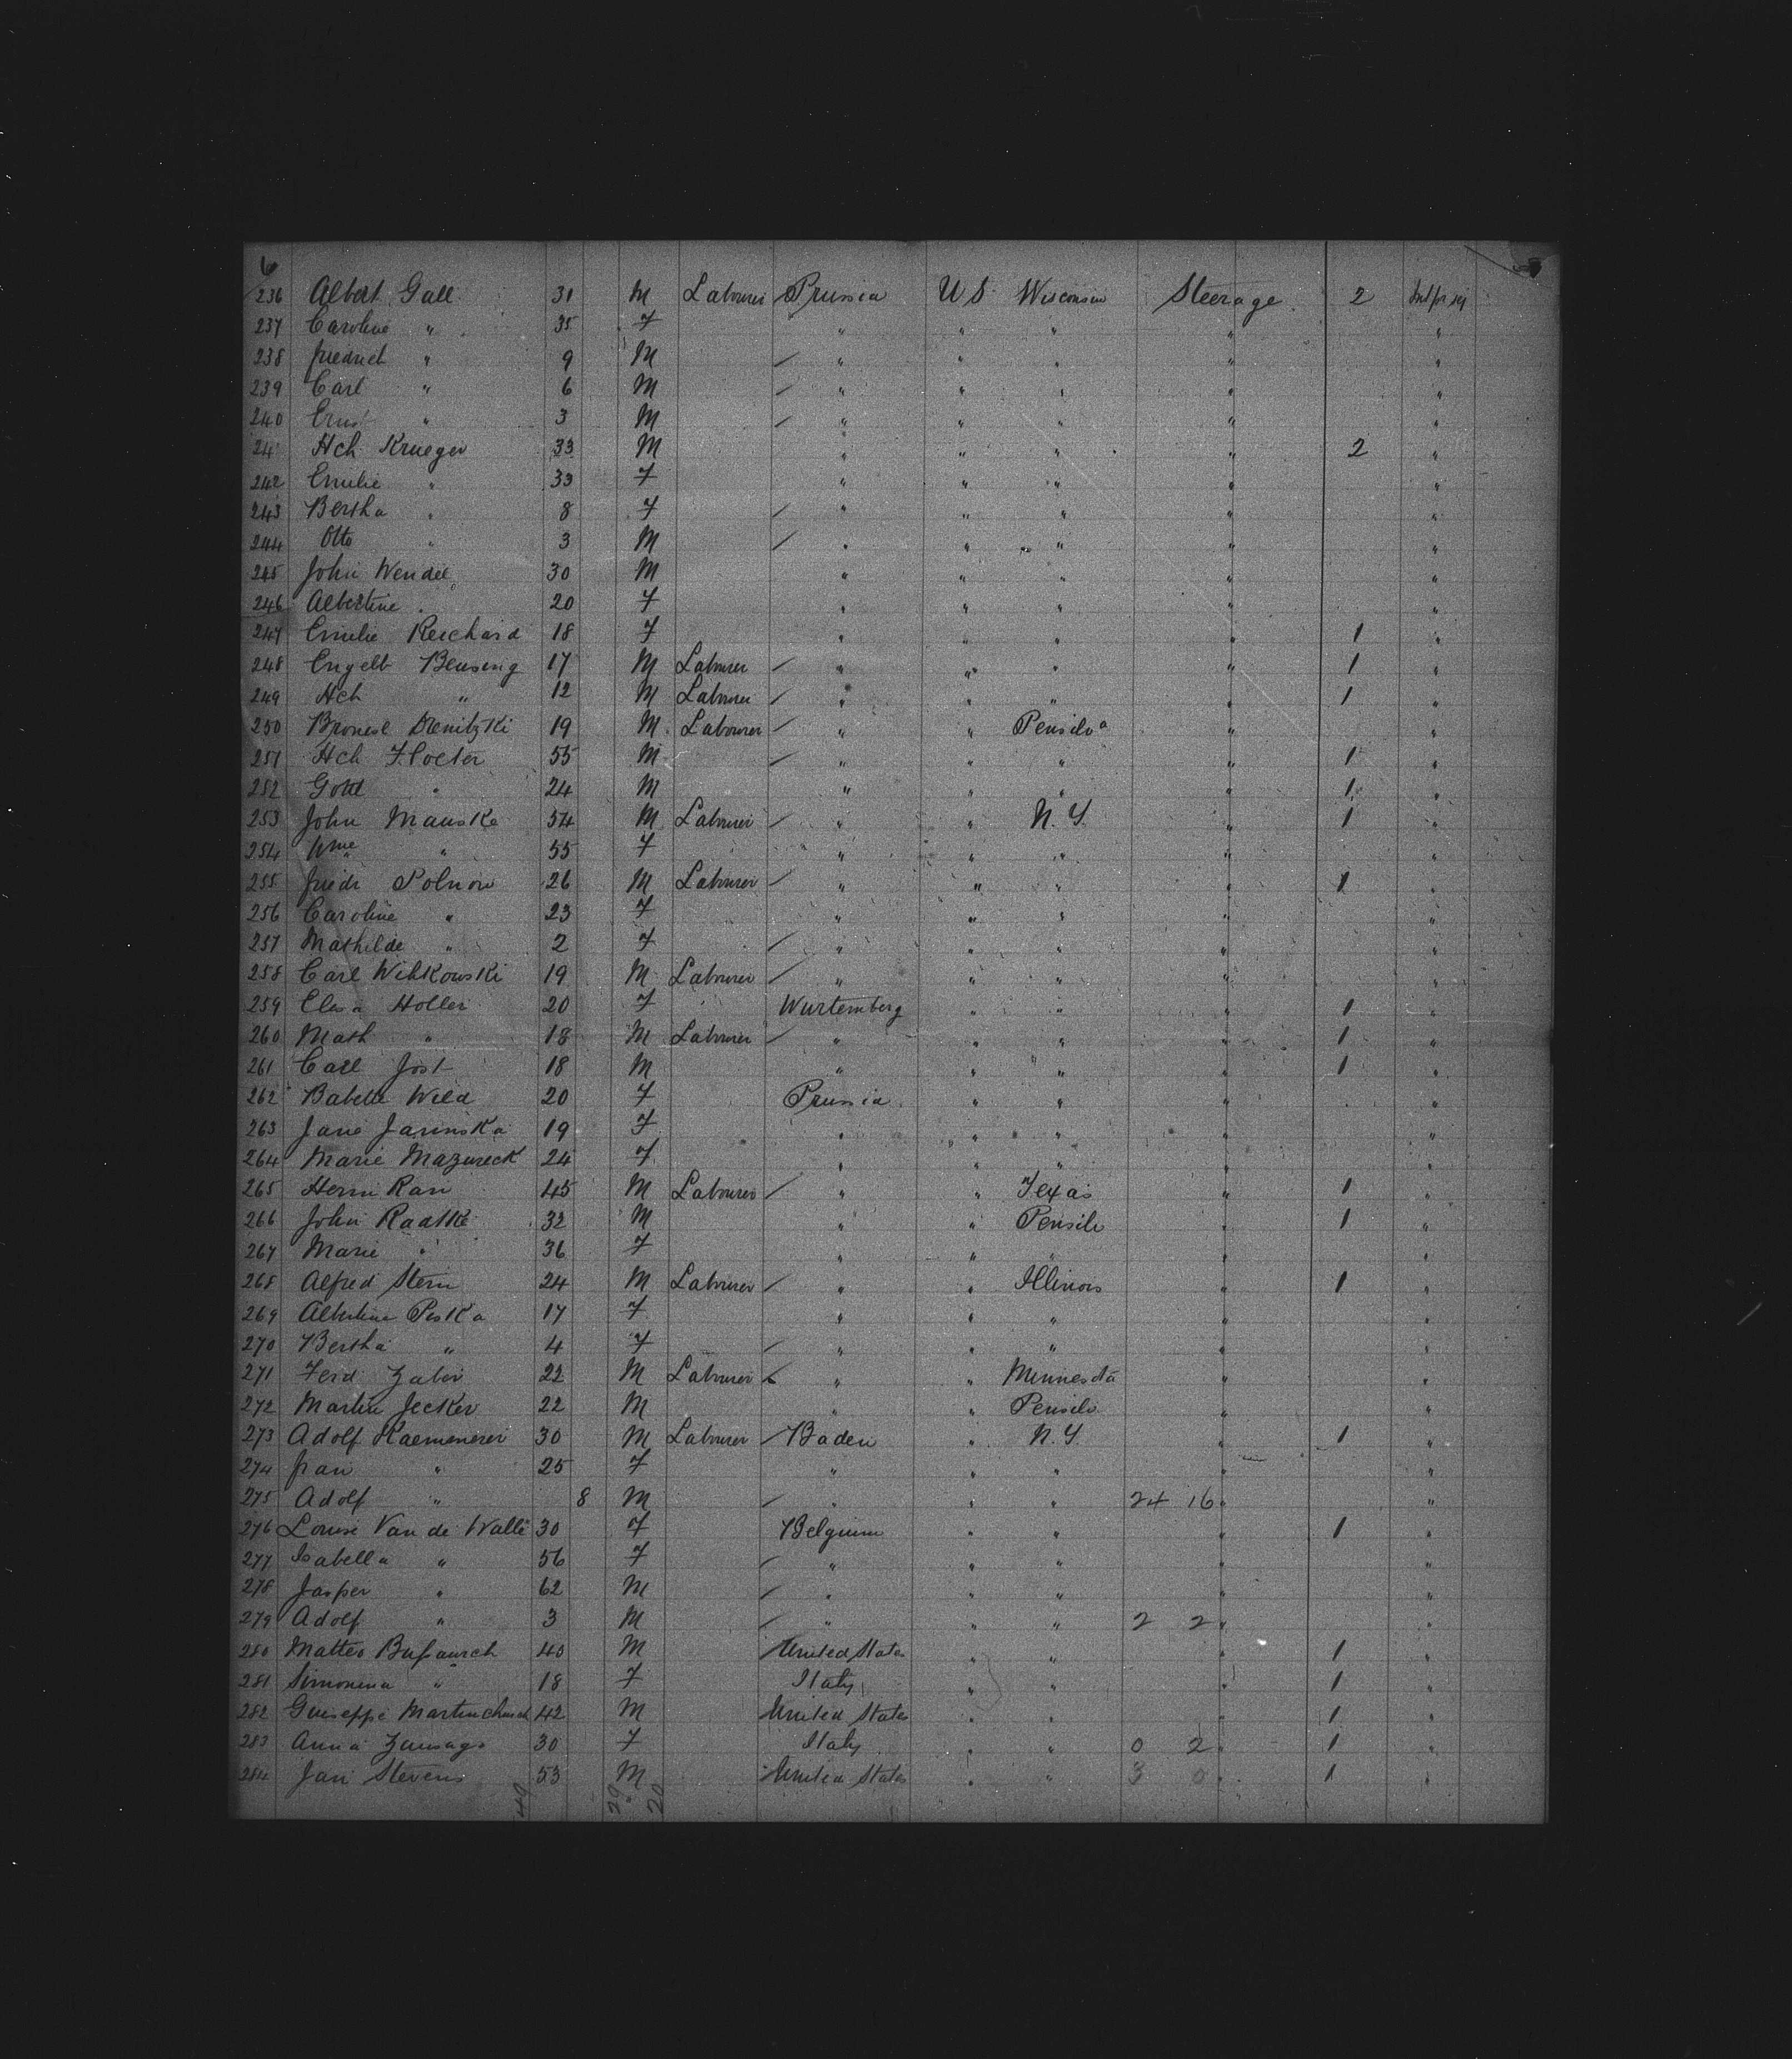 6
236 Albert Gall 31 M Labourer Prussia U S Wisconsin Steerage 2
237 Caroline " 35 F " " " " "
238 Friedrich " 9 M " " " " "
239 Carl " 6 M " " " " "
240 Ernst " 3 M " " " " "
24 Hch Krueger 33 M " " " " 2 "
242 Emilie " 33 F " " " " "
243 Bertha " 8 F " " " " "
244 Otto " 3 M " " " " "
245 John Wendel 30 M " " " " "
246 Albertine " 20 F " " " " "
247 Emilie Reichard 18 F " " " " 1 "
248 Engelb Bensing 17 M Labourer " " " " 1 "
249 Hch " 12 M Labourer " " " " 1 "
250 19 M Labourer " " Pensilva " "
251 Hch Floeter 55 M " " " " 1 "
252 Gottl " 24 M " " " " 1 "
253 John Manske 54 M Labourer " " N.Y " 1 "
254 Wme " 55 F " " " " "
255 Friedr Polnow 26 M Labourer " " " " 1 "
256 Caroline " 23 F " " " " "
257 Mathilde " 2 F " " " " "
258 Carl Witkowski 19 M Labourer " " " " "
259 Elisa Holler 20 F Wurtemberg " " " 1 "
260 Math " 18 M Labourer " " " " 1 "
261 Carl Jost 18 M " " " " 1 "
262 Babette Wild 20 F Prussia " " " "
263 Jane Jarinska 19 F " " " " "
264 Marie Mazureck 24 F " " " " "
265 Herm Rau 45 M Labourer " " Texas " 1 "
266 John Radtke 32 M " " Pensilv " 1 "
267 Marie " 36 F " " " " "
268 Alfred Stern 24 M Labourer " " Illinois " 1 "
269 Albertine Peska 17 F " " " " "
270 Bertha " 4 F " " " " "
271 Ferd Zabir 22 M Labourer " " Minnesota " "
272 Martin Jecker 22 M " " Pensilv " "
273 Adolf Kaemmerer 30 M Labourer Baden " N.Y. " 1 "
274 Frau " 25 F " " " " "
275 Adolf " 8 M " " " 24 16 " "
276 Louise Van de Walle 30 F Belgium " " " 1 "
277 Isabella " 56 F " " " " "
278 Jasper " 62 M " " " " "
279 Adolf " 3 M " " " 2 2 " "
280 Matteo 40 M United States " " " 1 "
281 Simonina " 18 F Italy " " " 1 "
282 Guiseppe 42 M United States " " " 1 "
283 Anna 30 F Italy " " 0 2 " 1 "
284 Jan Stevens 53 M United States " " 3 0 " 1 "
49 29 20